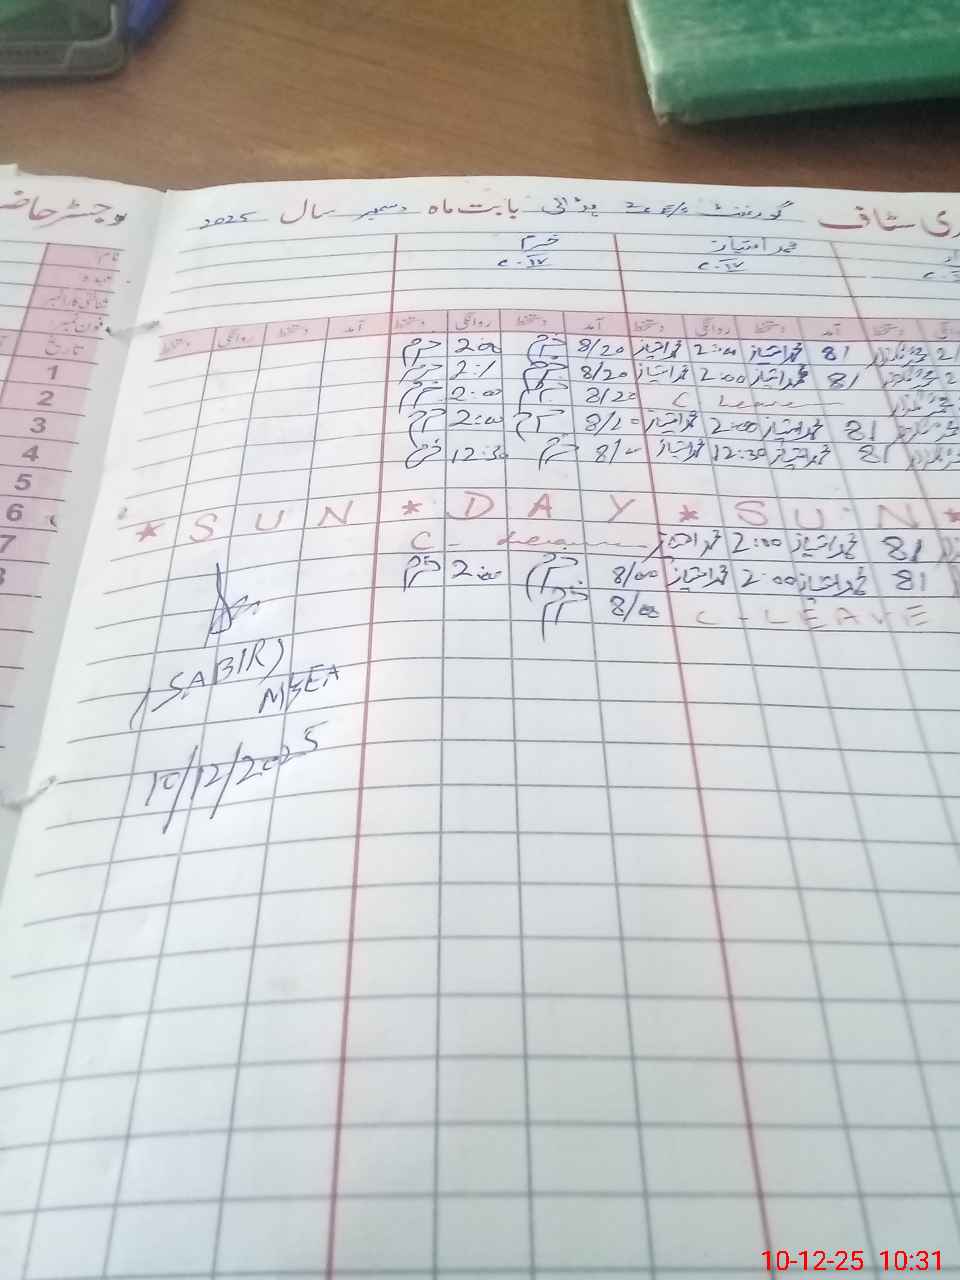 ری سٹاف گورنمنٹ بابت ماہ دسمبر سال 2025
رجسٹر حاضر
محمد امتیاز خرم
C-IV C-IV
نام
عہدہ
شناختی کارڈ نمبر
فون نمبر
تاریخ
آمد دستخط روانگی دستخط آمد دستخط روانگی دستخط آمد دستخط روانگی دستخط
1 8/ محمد امتیاز 2:00 محمد امتیاز 8/20 خرم 2:00 خرم
2 8/ محمد امتیاز 2:00 محمد امتیاز 8/20 خرم خرم
3 C Leave 8/20 خرم 2:00 خرم
4 8/ محمد امتیاز 2:00 محمد امتیاز خرم 2:00 خرم
5 8/ محمد امتیاز 12:30 محمد امتیاز خرم 12:30 خرم
6
7 * S U N * D A Y * S U N *
8/ محمد امتیاز 2:00 محمد امتیاز C - Leave
8/ محمد امتیاز 2:00 محمد امتیاز 8/00 خرم 2:00 خرم
C - LEAVE 8/00 خرم
(SABIR)
MEA
10/12/2025
10-12-25 10:31